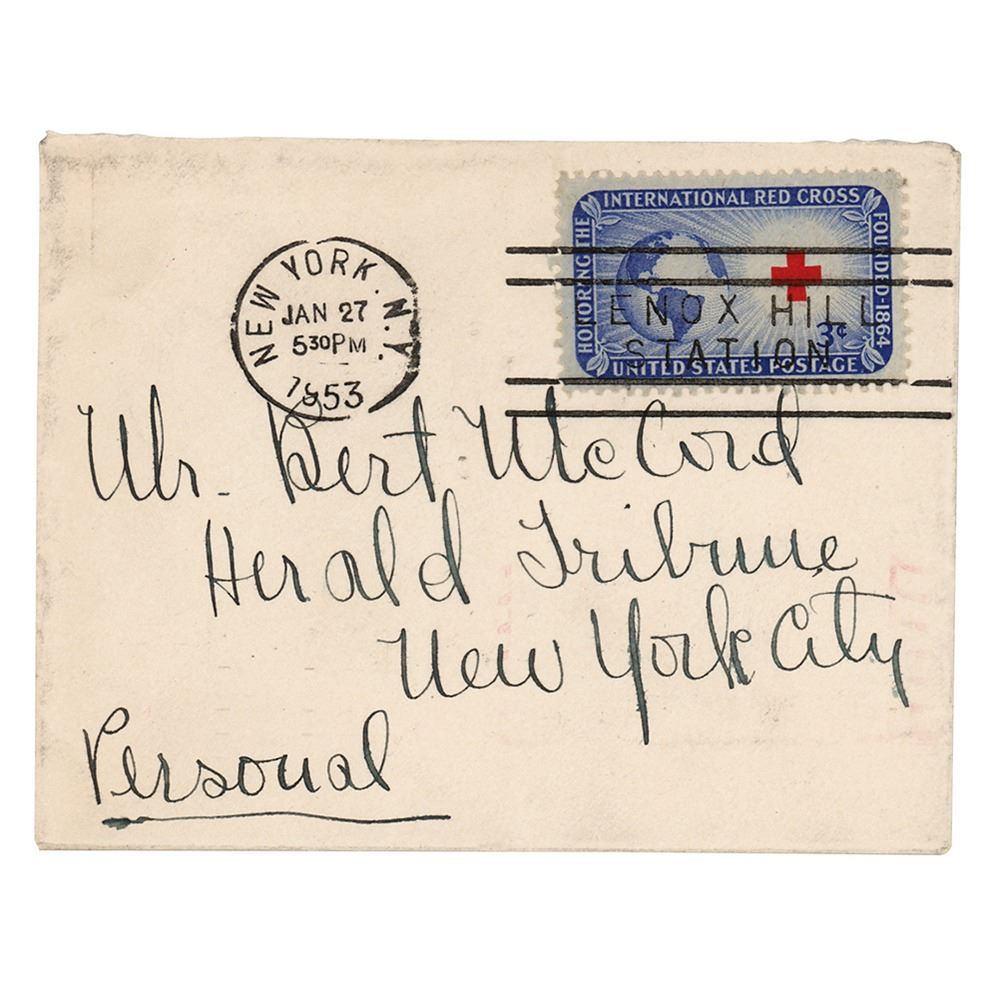 NEW YORK, N.Y.
JAN 27
5 30 PM
1953
HONORING THE INTERNATIONAL RED CROSS FOUNDED-1864
3¢
UNITED STATES POSTAGE
LENOX HILL
STATION
Mr. Bert McCord
Herald Tribune
New York City
Personal